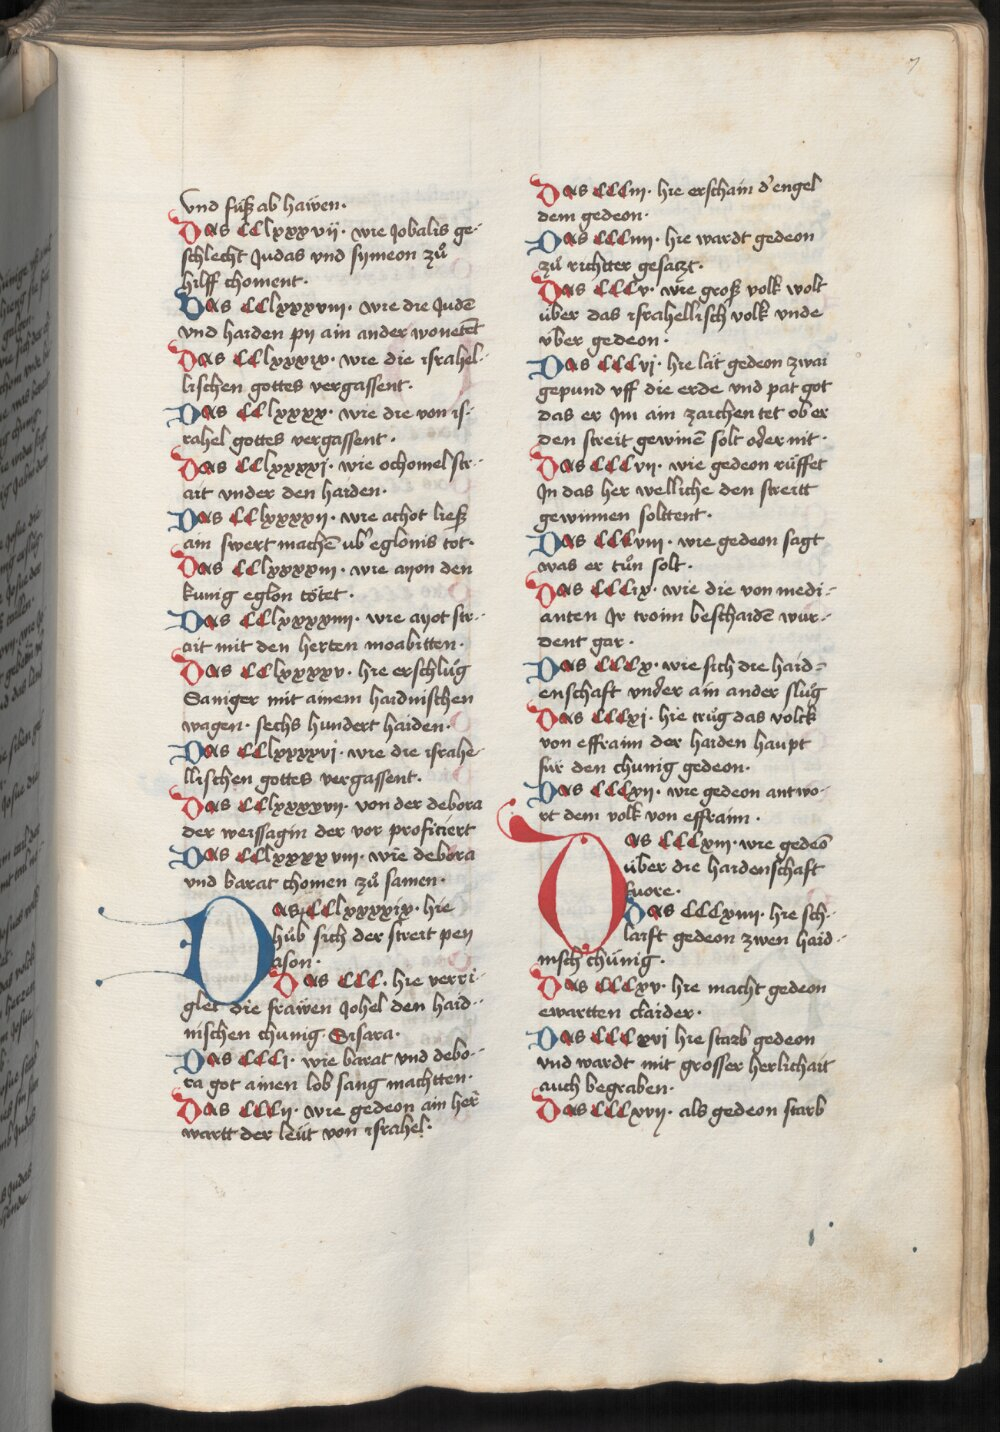 7
vnd füß ab haẅen·
Das CClxxxvij· wie Jobalis ge-
schlecht Judas vnd symeon zů
hilff choment·
Das CClxxxviij· wie die Judē
vnd haiden pij ain ander wonetēt
Das CClxxxix· wie die israhel-
lischen gottes vergassent·
Das CClxxxx· wie die von is-
rahel gottes vergassent·
Das CClxxxxj· wie ochomel str-
ait vnder den haiden·
Das CClxxxxij· wie achot ließ
ain swert machē vb' eglonis tot·
Das CClxxxxiij· wie aijon den
kunig eglon tötet·
Das CClxxxxiiij· wie aijot str-
ait mit den herten moabitten·
Das CClxxxxv· hie erschlůg
Saniger mit ainem haidnischen
wagen· sechs hundert haiden·
Das CClxxxxvi· wie die israhe-
llischen gottes vergassent·
Das CClxxxxvij· von der debora
der weissagin der vor proficiert
Das CClxxxxviij· wie debora
vnd barat chomen zů samen·
Das CClxxxxix· hie
hůb sich der streit pen
ason·
Das CCC· hie verri-
glet die fraẅen Johel den haid-
nischen chunig· Sisara·
Das CCCi· wie barat vnd debo-
ra got ainen lob sang machtten·
Das CCCij· wie gedeon ain her
wartt der leüt von israhel·
Das CCCiij· hie erschain d'engel
dem gedeon·
Das CCCiiij· hie wardt gedeon
zů richtter gesatzt·
Das CCCv· wie groß volk wolt
über das israhellisch volk vnde
über gedeon·
Das CCCvj· hie lät gedeon zwai
gepund vff die erde vnd pat got
das er Jm ain zaichen tet ob er
den streit gewinē solt oder nit·
Das CCCvij· wie gedeon rüffet
Jn das her welliche den streitt
gewinnen solttent·
Das CCCviij· wie gedeon sagt
was er tůn solt·
Das CCCix· wie die von medi-
anten Jr troim beschaidē wur-
dent gar·
Das CCCx· wie sich die haid-
enschaft vnder ain ander slůg
Das CCCxj· hie trůg das volck
von effraim der haiden haupt
für den chunig gedeon·
Das CCCxij· wie gedeon antwo-
rt dem volk von effraim·
Das CCCxiij· wie gedeō
über die haidenschaft
fuore·
Das CCCxiiij· hie sch-
laift gedeon zwen haid-
nisch chünig·
Das CCCxv· hie macht gedeon
ewartten claider·
Das CCCxvj hie starb gedeon
vnd wardt mit grosser herlichait
auch begraben·
Das CCCxvij· als gedeon starb